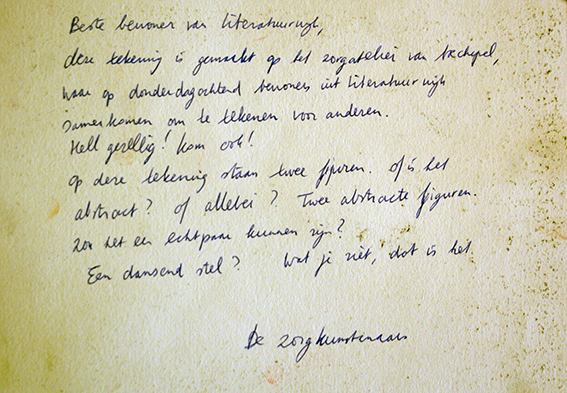 Beste bewoner van Literatuurwijk,
deze tekening is gemaakt op het zorgatelier van Archipel,
waar op donderdagochtend bewoners uit Literatuurwijk
samenkomen om te tekenen voor anderen.
Heel gezellig! Kom ook!
Op deze tekening staan twee figuren. Of is het
abstract? Of allebei? Twee abstracte figuren.
Zou het een echtpaar kunnen zijn?
Een dansend stel? Wat je ziet, dat is het.
De zorgkunstenaars